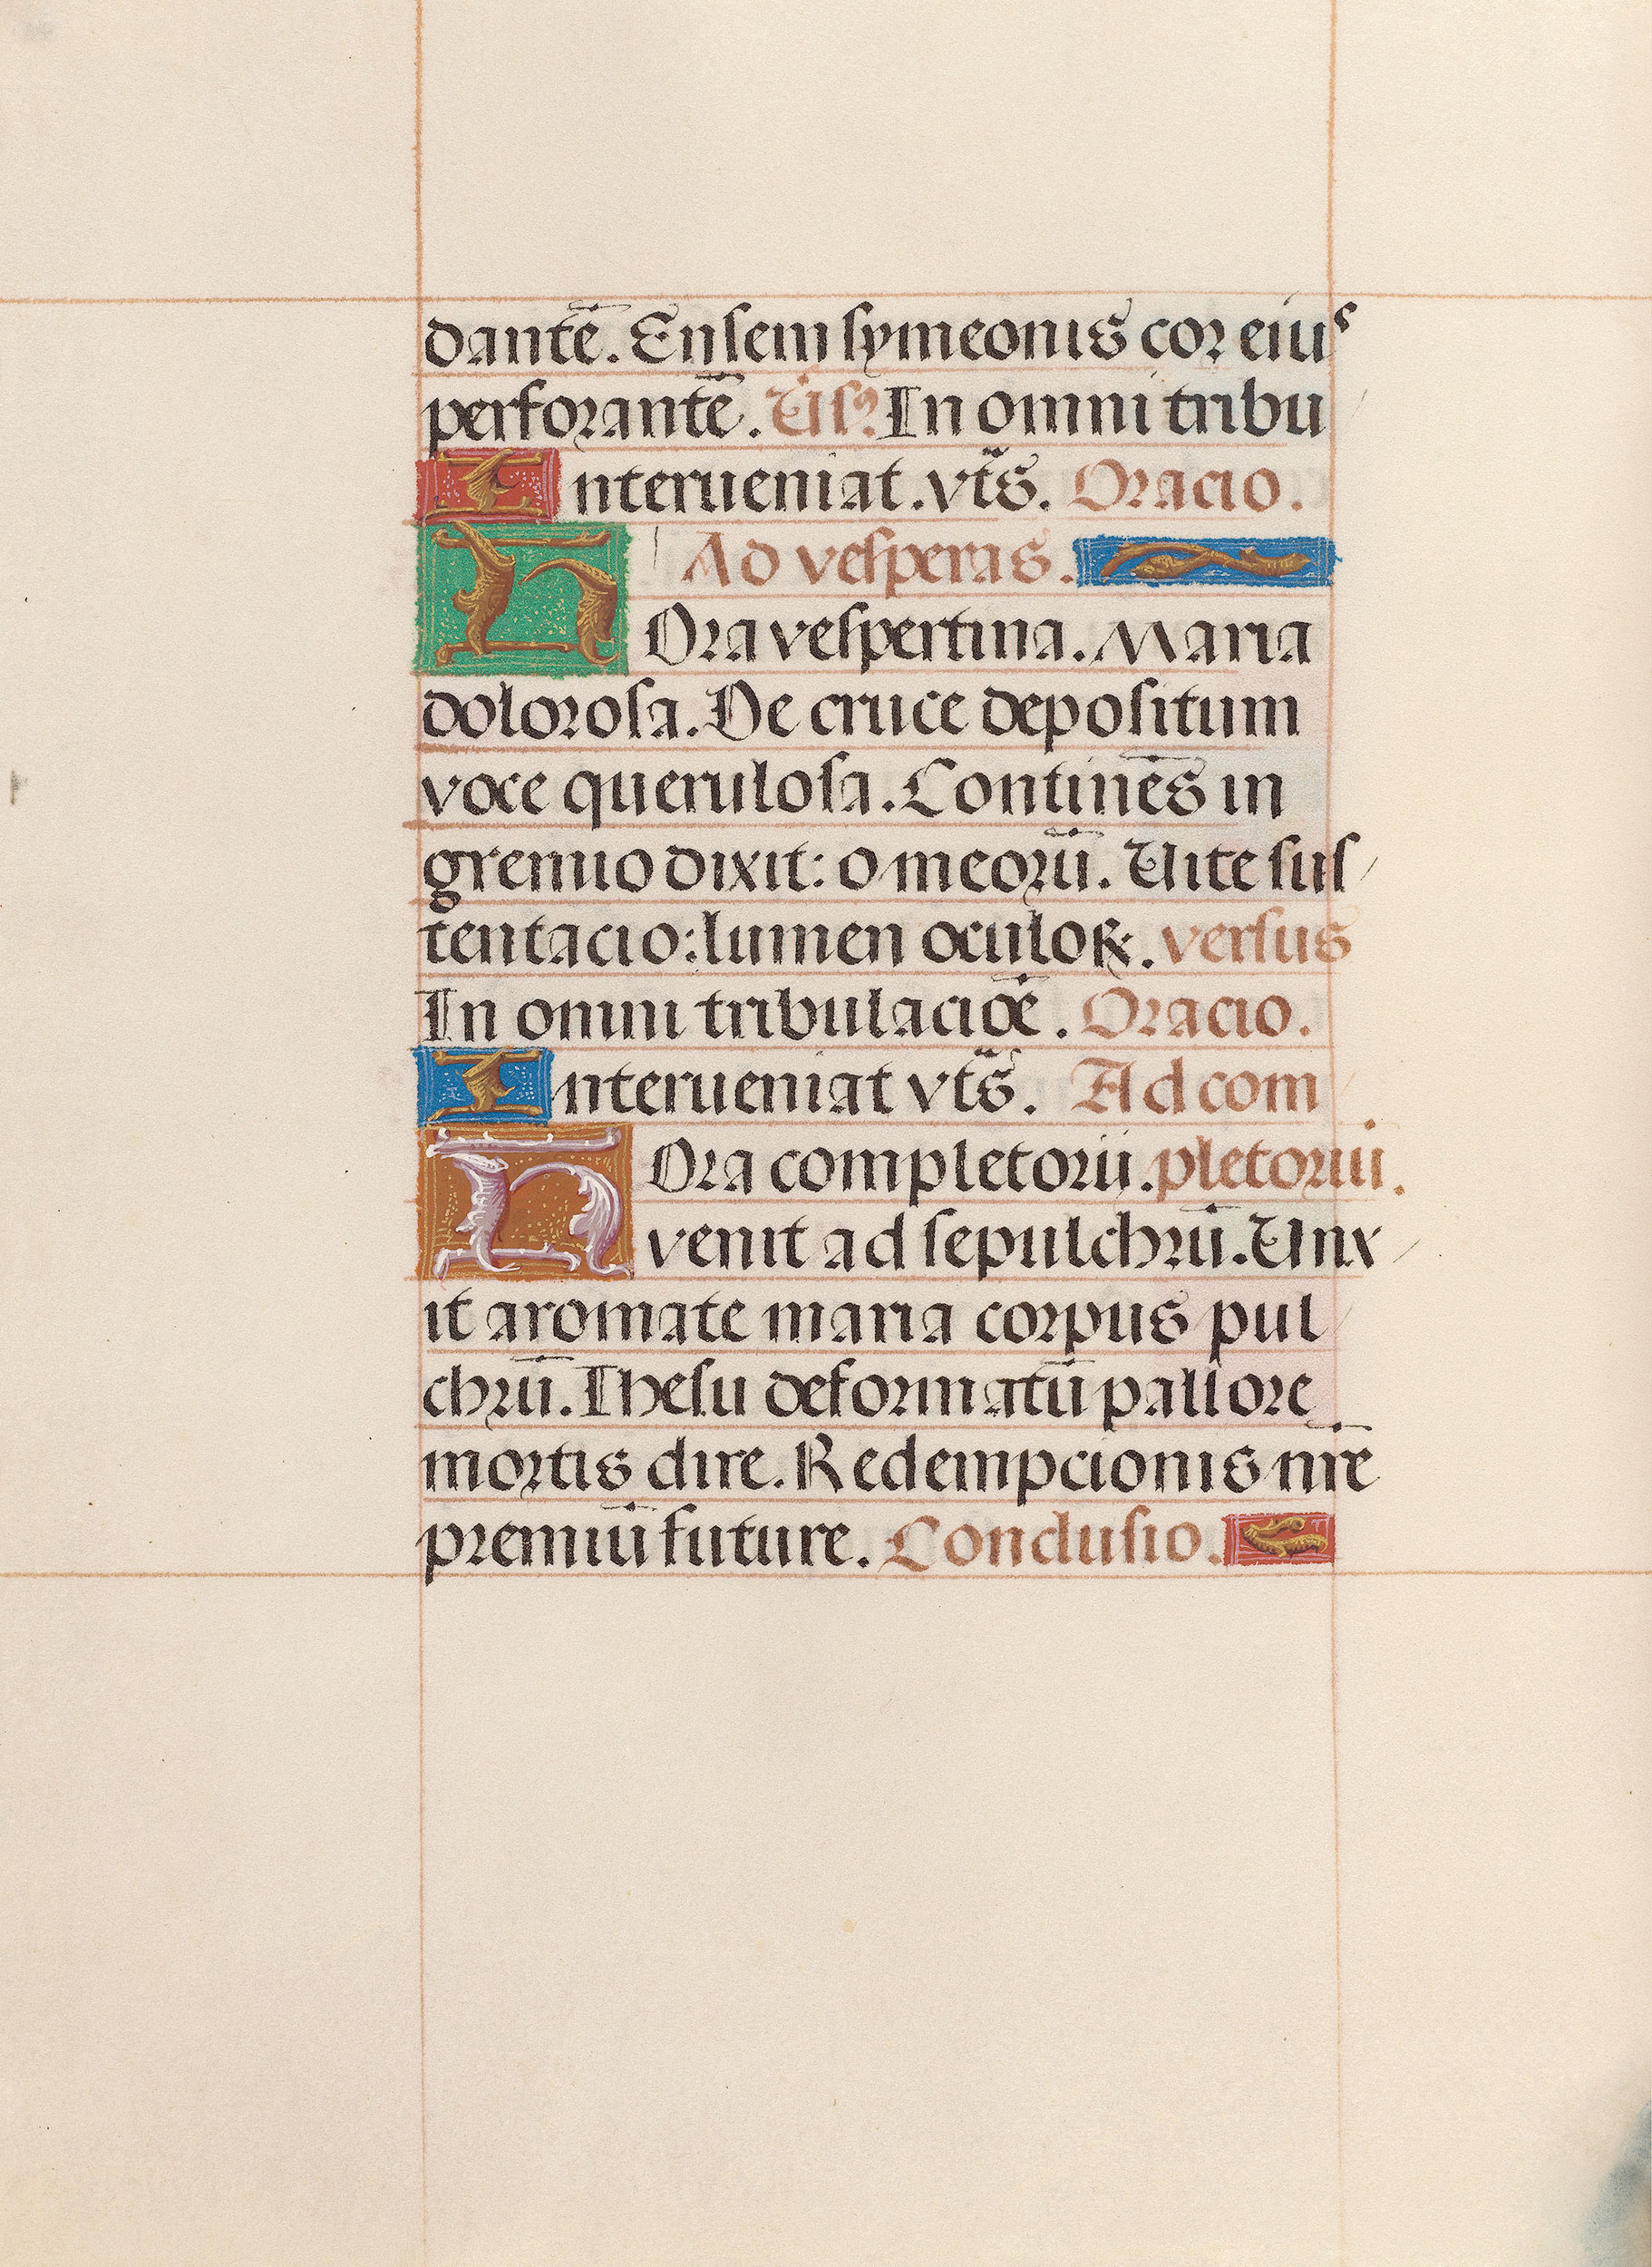 dantē. Ensem symeonis cor eius
perforantē. Vsꝰ. In omni tribu
Interueniat. vts̄. Oracio.
Ad vesperas.
HOra vespertina. Maria
dolorosa. De cruce depositum
voce querulosa. Continēs in
gremio dixit: o meorū. Uite sus
tentacio: lumen oculoꝝ. versus
In omni tribulaciōe. Oracio.
Interueniat vts̄. Ad com
HOra completorii. pletorium.
venit ad sepulchrū. Unx
it aromate maria corpus pul
chrū. Ihesu deformatū pallore
mortis dire. Redempcionis nr̄e
premiū future. Conclusio.